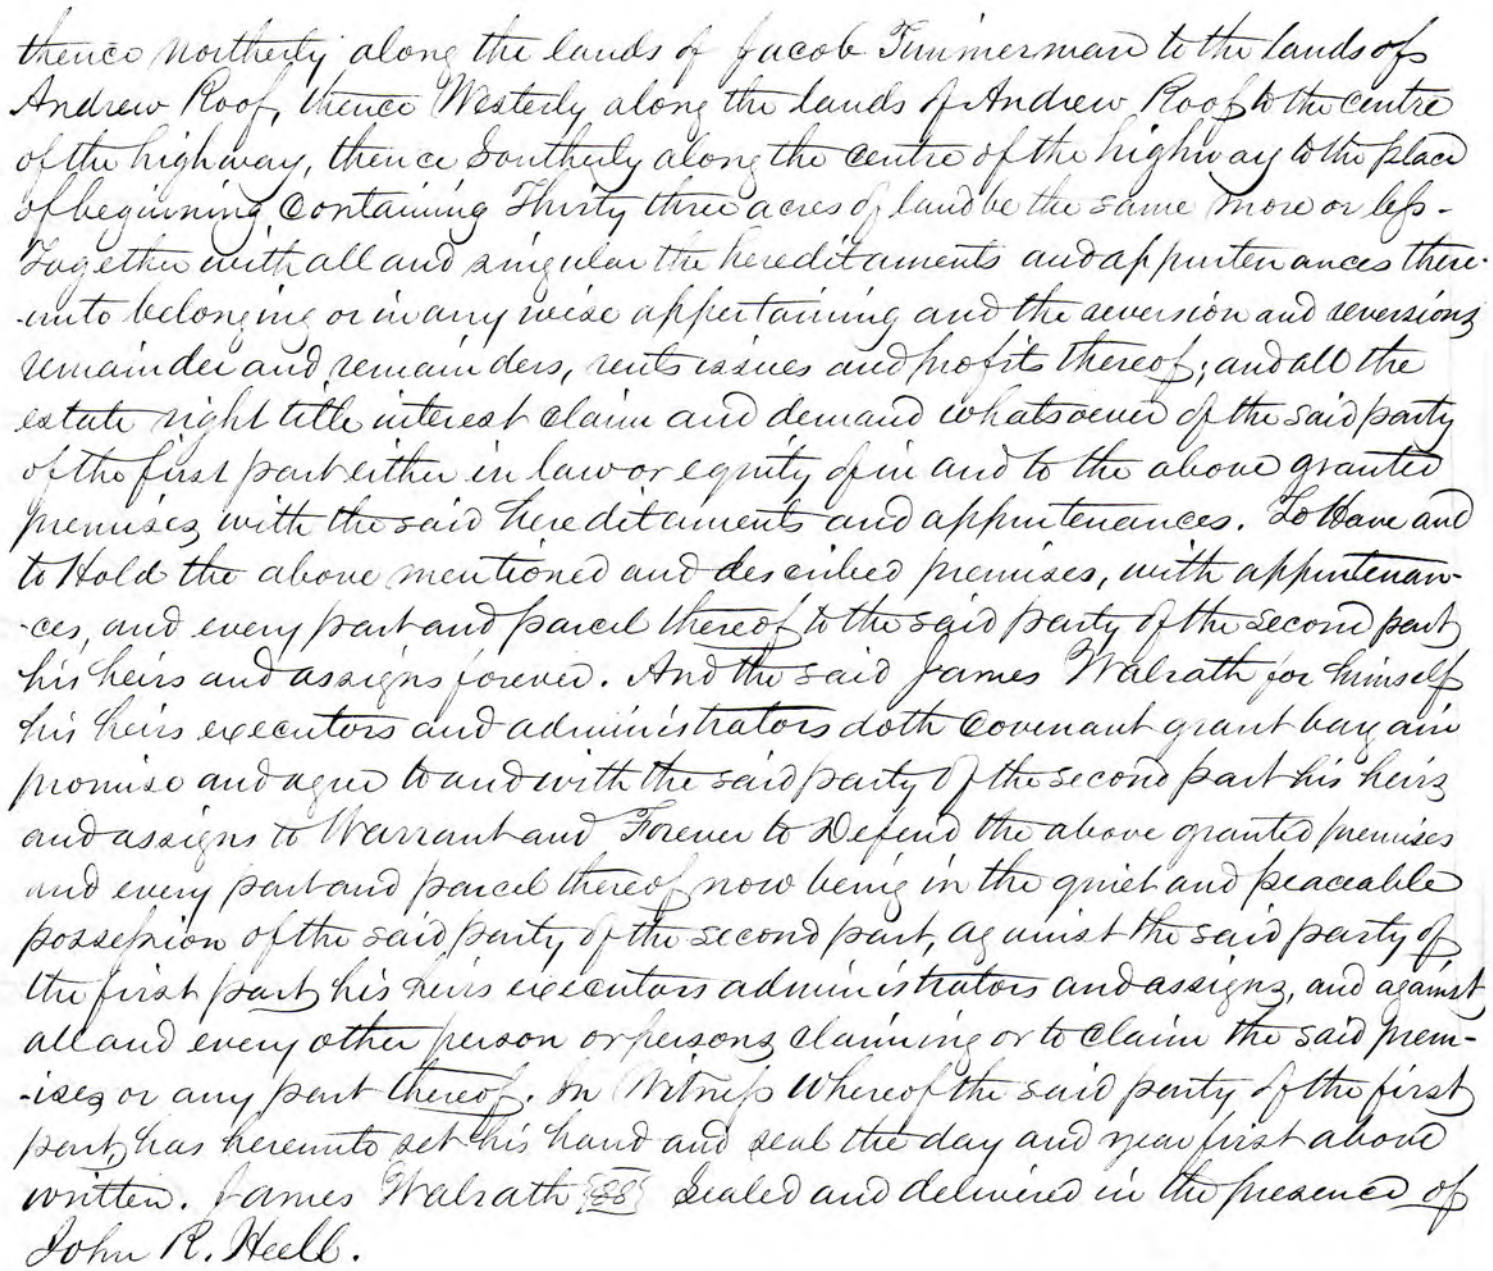 thence Northerly along the lands of Jacob Timmerman to the lands of
Andrew Roof, thence Westerly along the lands of Andrew Roof to the centre
of the highway, thence Southerly along the centre of the highway to the place
of beginning, Containing Thirty three acres of land be the same more or less -
Together with all and singular the hereditaments and appurtenances there-
-unto belonging or in any wise appertaining and the reversion and reversions
remainder and remainders, rents issues and profits thereof; and all the
estate right title interest claim and demand whatsoever of the said party
of the first part either in law or equity of in and to the above granted
premises with the said hereditaments and appurtenances. To Have and
to Hold the above mentioned and described premises, with appurtenan-
-ces, and every part and parcel thereof to the said party of the second part
his heirs and assigns forever. And the said James Walrath for himself
his heirs executors and administrators doth Covenant grant bargain
promise and agree to and with the said party of the second part his heirs
and assigns to Warrant and Forever to Defend the above granted premises
and every part and parcel thereof now being in the quiet and peaceable
possession of the said party of the second part, against the said party of
the first part, his heirs executors administrators and assigns, and against
all and every other person or persons claiming or to claim the said prem-
-ises or any part thereof. In Witness Whereof the said party of the first
part, has hereunto set his hand and seal the day and year first above
written. James Walrath Sealed and delivered in the presence of
John R.